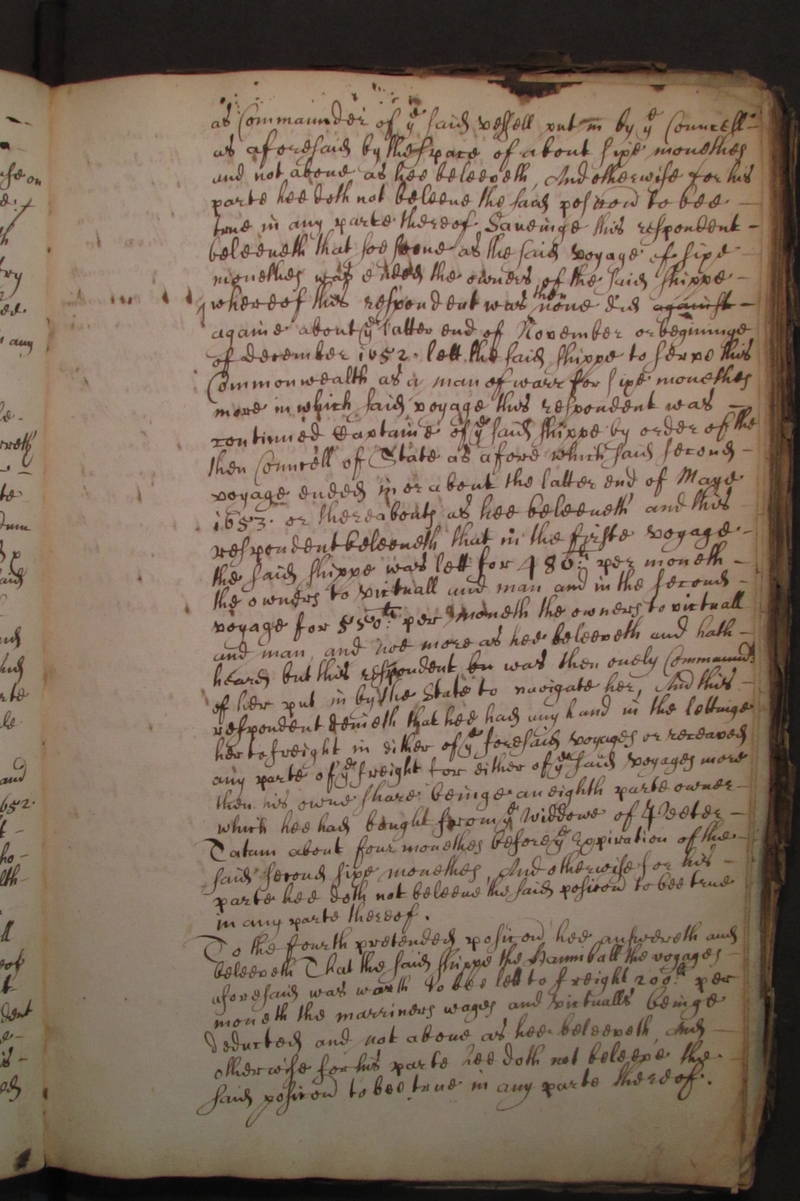 as Commaunder of ye said vessell put in by ye Councell
as aforesaid by the space of about sixe monethes
and not above as hee beleeveth, And otherwise for his
parte hee doth not beleeve the said posicon to bee
true in any parte thereof. Saveinge this respondent
beleeveth that soe soone as the said voyage of sixe
monethes was ended the owners of the said shippe
whereof this respondent was then none did against
againe about ye latter end of November or beginninge
of december 1652. lett the said shippe to serve this
Commonwealth as a man of warr for sixe monethes
more in which said voyage this respondent was
continued Captaine of ye said shippe by order of the
then Councell of State as afore which said second
voyage ended in or about the latter end of Maye
1653. or thereabouts as hee beleeveth and this
respondent beleeveth that in the firste voyage
the said shippe was lett for 480li per moneth
the owners to victuall and man and in the second
voyage for 550li per moneth the owners to victuall
and man, and noe more as hee beleeveth and hath
heard but this respondent was then onely Commaundr
of her put in by the State to navigate her, And this
respondent denieth that hee had any hand in the lettinge
her to freight in either of ye foresaid voyages or receaved
any parte of ye freight for either of ye said voyages more
then his owne share beinge an eighth parte owner
which hee had bought from ye Widdowe of Peeter
Tatam about four monethes before ye expiration of the
said second sixe monethes, And otherwise for his
parte hee doth not beleeve the said posicon to bee true
in any parte thereof.
To the fourth pretended posicon hee answereth and
beleeveth That the said shippe the Hanniball the voyages
aforesaid was worth to bee lett to freight 200li per
moneth the marriners wages and victualls beinge
deducted and not above as hee beleeveth, And
otherwise for his parte hee doth not beleeve the
said posicon to bee true in any parte thereof.